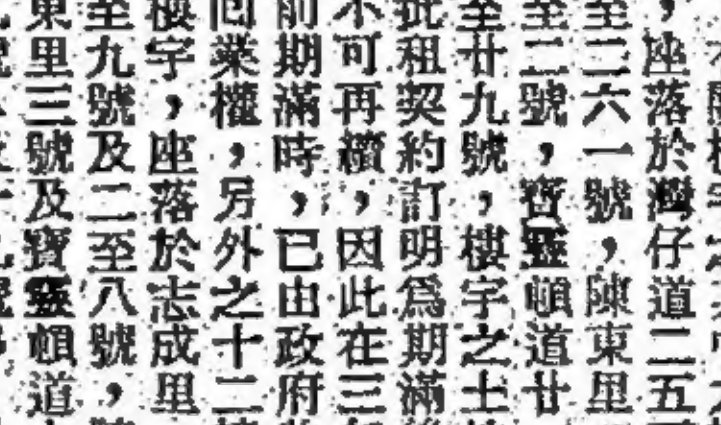 ，座落於灣仔道二五
至二六一號，陳東里
至二號，寶靈頓道廿
至廿九號，樓宇之土
批租契約訂明爲期滿
不可再續，因此在三
前期滿時，已由政府
回業權，另外之十二
樓宇，座落於志成里
至九號及二至八號，
東里三號及寶靈頓道